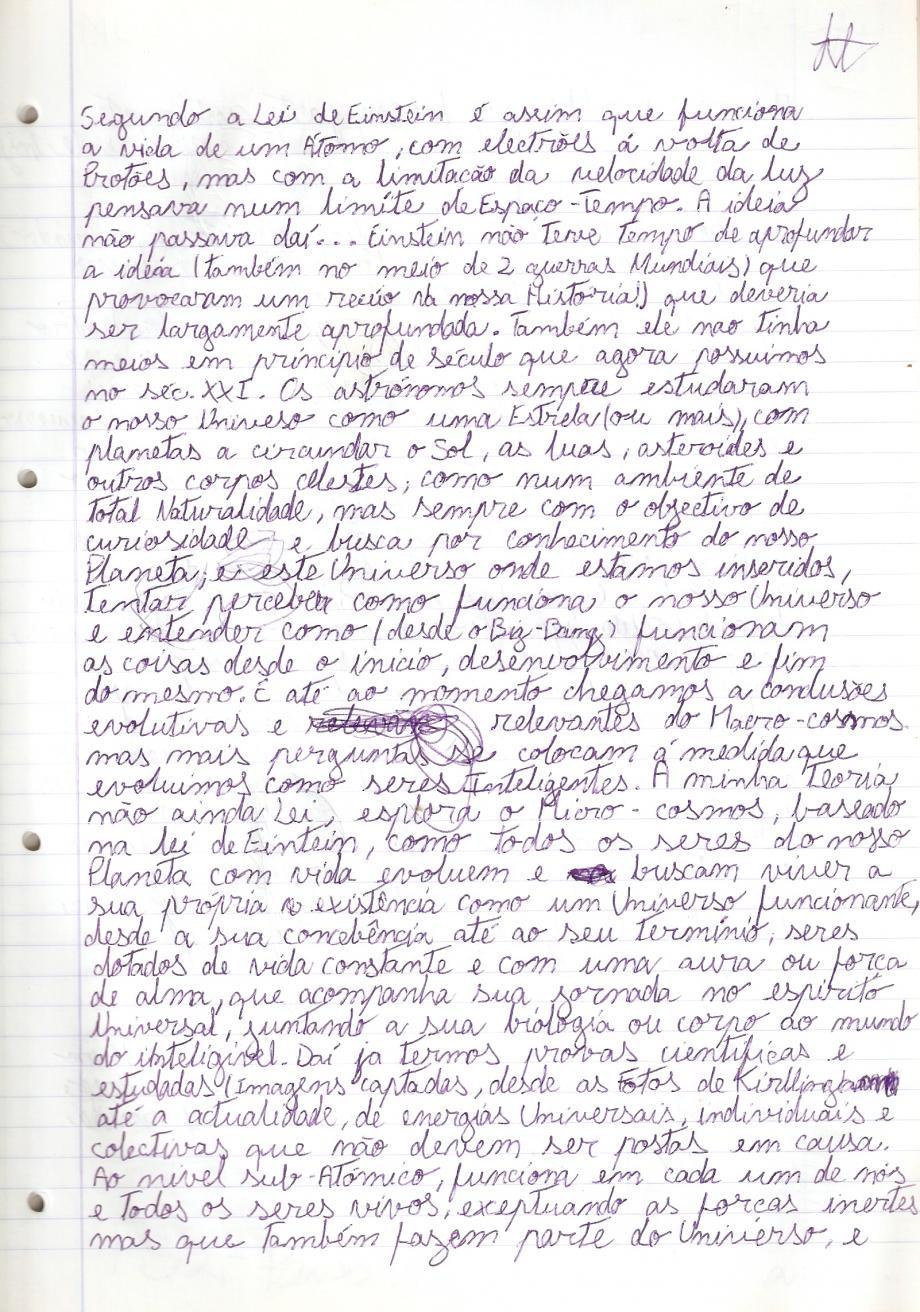 Segundo a Lei de Einstein é assim que funciona
a vida de um Átomo, com electrões á volta de
Protões, mas com a limitação da velocidade da luz
pensava num limite de Espaço-Tempo. A ideia
não passava daí... Einstein não teve tempo de aprofundar
a ideia (também no meio de 2 guerras Mundiais) que
provocaram um recúo na nossa História!) que deveria
ser largamente aprofundada. Também ele nao tinha
meios em princípio de século que agora possuimos
no séc. XXI. Os astrónomos sempre estudaram
o nosso Univeso como uma Estrela (ou mais), com
planetas a circundar o Sol, as luas, asteroides e
outros corpos celestes, como num ambiente de
total Naturalidade, mas sempre com o objectivo de
curiosidade e busca por conhecimento do nosso
Planeta, e este Universo onde estamos inseridos,
tentar perceber como funciona o nosso Universo
e entender como (desde o Big-Bang) funcionam
as coisas desde o início, desenvolvimento e fim
do mesmo. E até ao momento chegamos a conclusões
evolutivas e relevantes do Macro-cosmos
mas mais perguntas se colocam á medida que
evoluimos como seres Inteligentes. A minha Teoria
não ainda Lei, explora o Micro-cosmos, baseado
na lei de Eintein, como todos os seres do nosso
Planeta com vida evoluem e buscam viver a
sua própria existência como um Universo funcionante,
desde a sua concebência até ao seu termínio, seres
dotados de vida constante e com uma aura ou força
de alma, que acompanha sua jornada no espirito
Universal, juntando a sua biologia ou corpo ao mundo
do inteligível. Daí ja termos provas cientificas e
estudadas (Imagens captadas, desde as Fotos de Kirlling
até a actualidade, de energias Universais, individuais e
colectivas que não devem ser postas em causa.
Ao nível sub-Atómico, funciona em cada um de nós
e todos os seres vivos, exceptuando as forças inertes
mas que também fazem parte do Universo, e